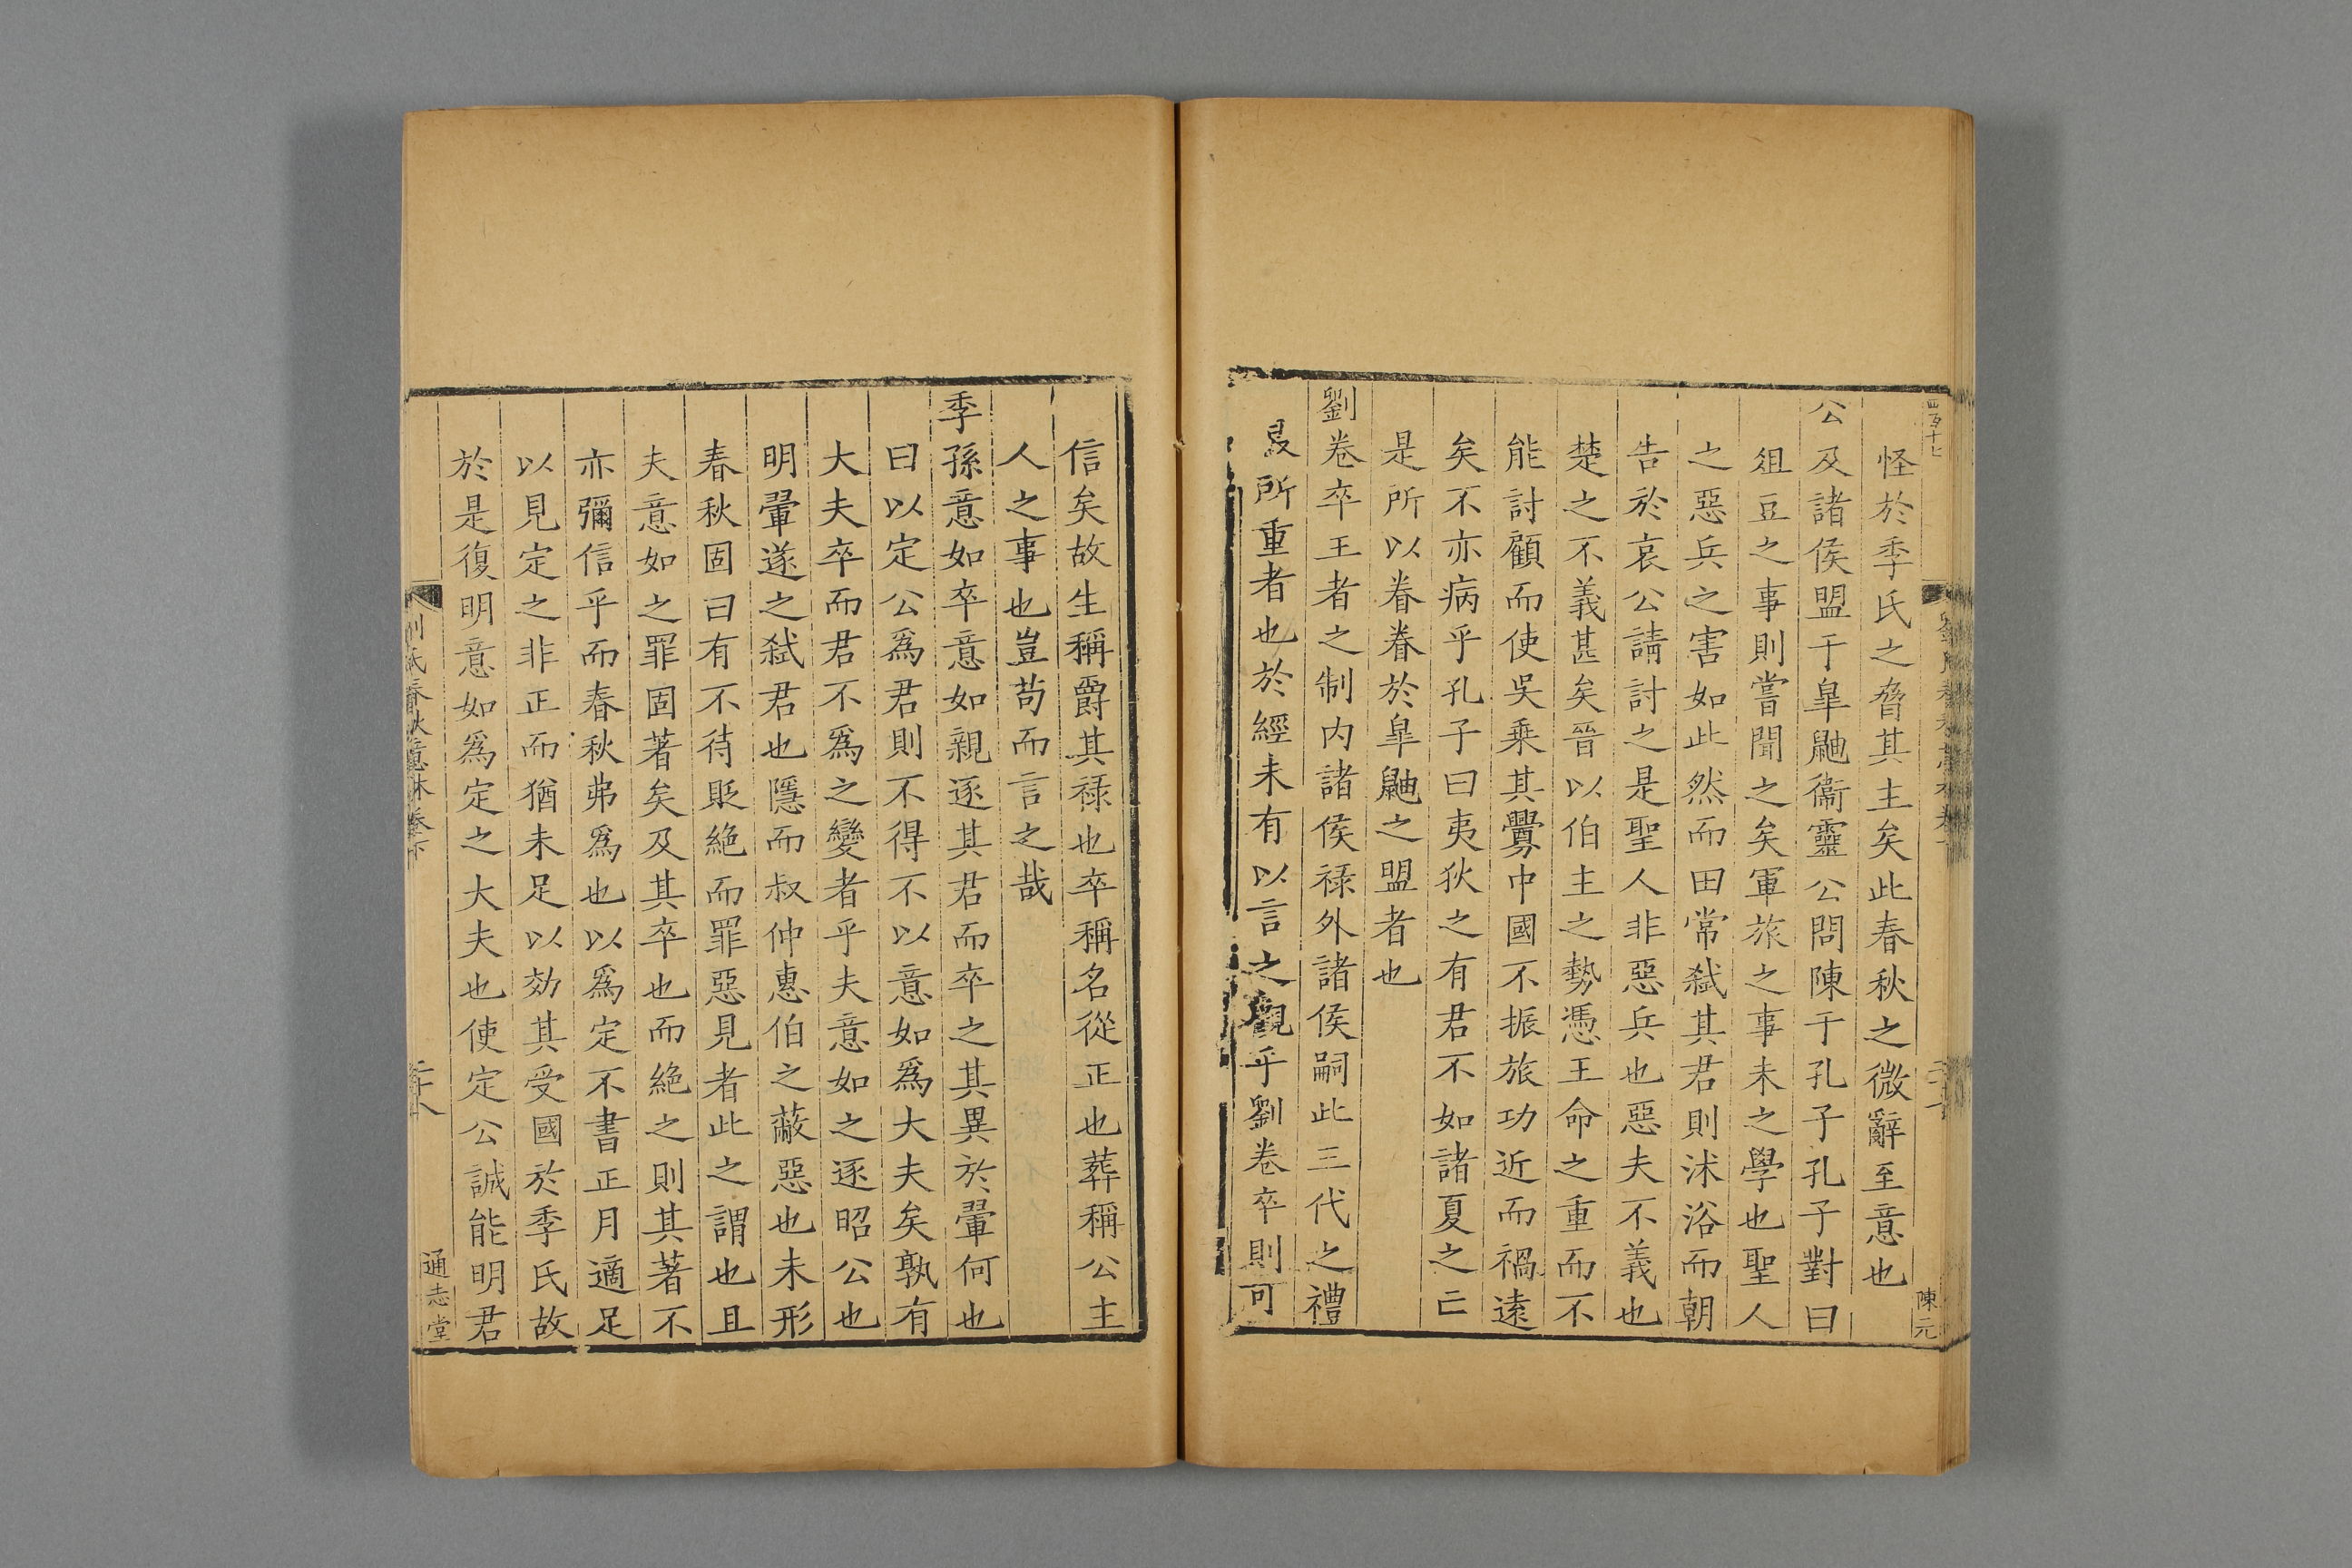 怪於季氏之脅其主矣此春秋之微辭至意也
公及諸侯盟于臯鼬衞靈公問陳于孔子孔子對曰
俎豆之事則嘗聞之矣軍旅之事未之學也聖人
之惡兵之害如此然而田常弑其君則沐浴而朝
告於哀公請討之是聖人非惡兵也惡夫不義也
楚之不義甚矣晉以伯主之勢憑王命之重而不
能討顧而使吳乗其釁中國不振旅功近而禍逺
矣不亦病乎孔子曰夷狄之有君不如諸夏之亡
是所以眷眷於臯鼬之盟者也
劉卷卒王者之制内諸侯禄外諸侯嗣此三代之禮
所重者也於經未有以言之觀乎劉卷卒則可
信矣故生稱爵其禄也卒稱名從正也葬稱公主
人之事也豈苟而言之哉
季孫意如卒意如親逐其君而卒之其異於翬何也
曰以定公爲君則不得不以意如爲大夫矣孰有
大夫卒而君不爲之變者乎夫意如之逐昭公也
明翬遂之弑君也隱而叔仲惠伯之蔽惡也未形
春秋固曰有不待貶絶而罪惡見者此之謂也且
夫意如之罪固著矣及其卒也而絶之則其著不
亦彌信乎而春秋弗爲也以爲定不書正月適足
以見定之非正而猶未足以効其受國於季氏故
於是復明意如爲定之大夫也使定公誠能明君
四百十七
陳元
劉氏春秋意林卷下
二十八
通志堂